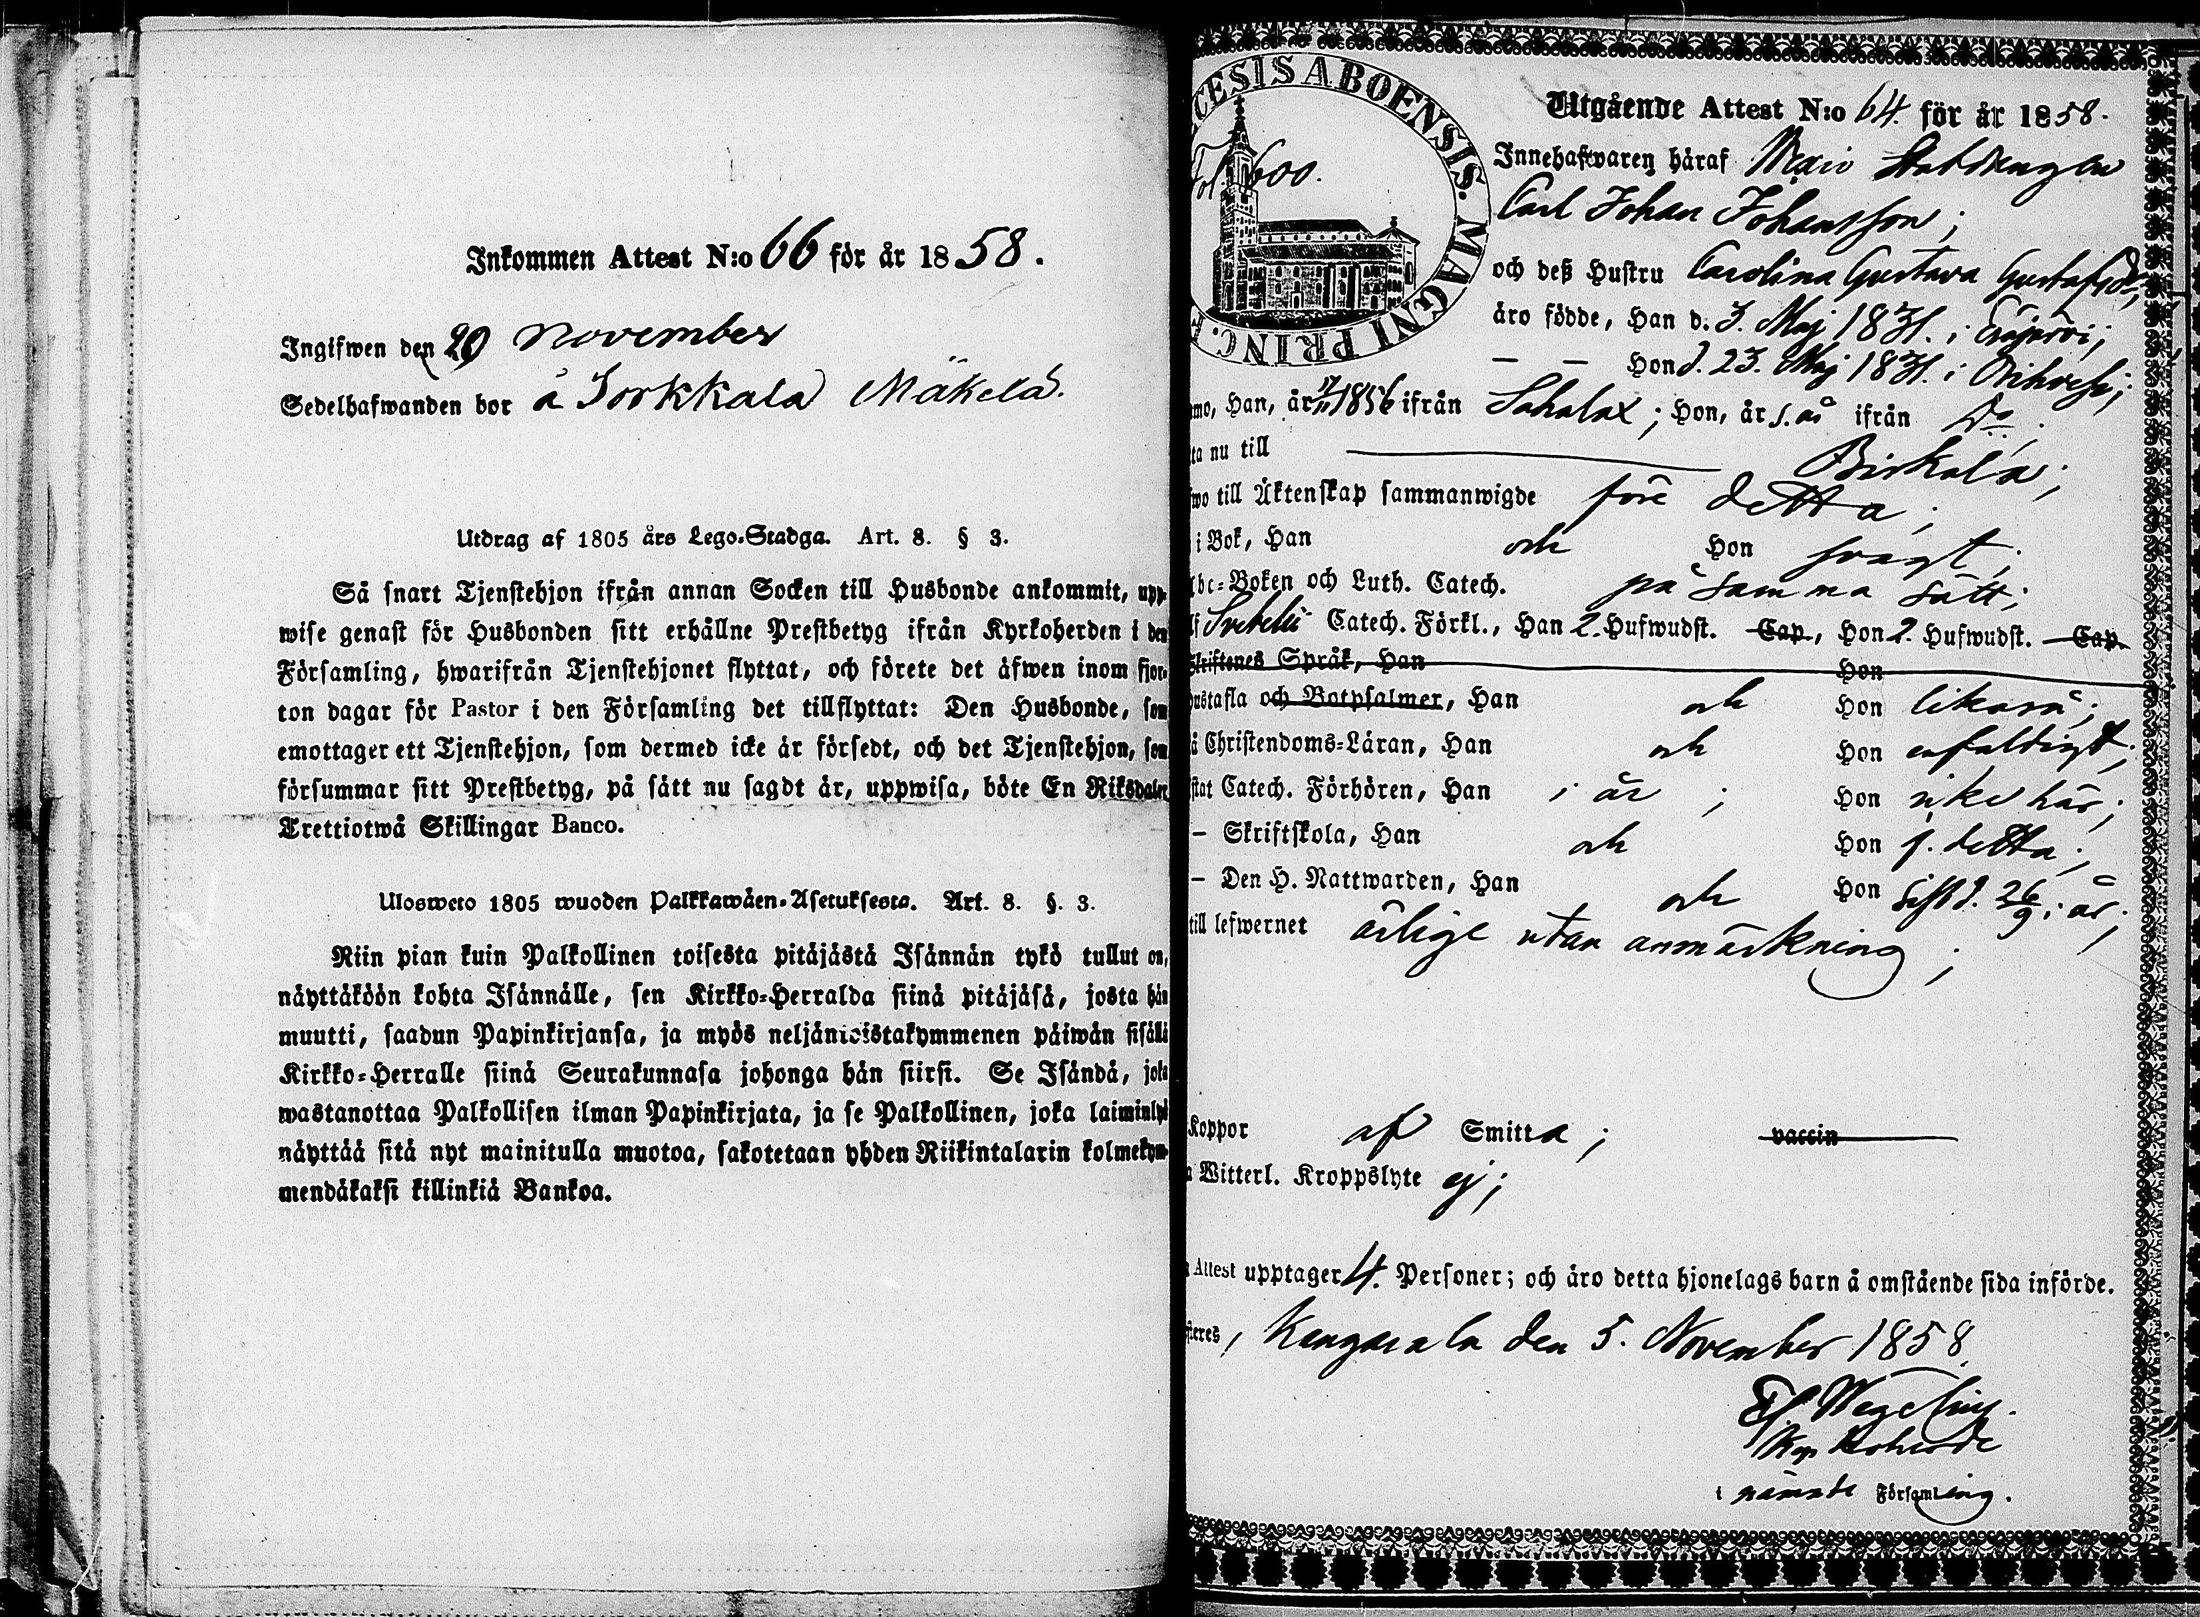 Inkommen Attest N:o 66 för år 1858.
Ingifwen den 29 November
Sedelhafwanden bor å Sorkkala Mäkelä.
Utdrag af 1805 års Lego-Stadga. Art. 8. § 3.
Så snart Tjenstehjon ifrån annan Socken till Husbonde ankommit, upp-
wise genast för Husbonden sitt erhållne Prestbetyg ifrån Kyrkoherden i den
Församling, hwarifrån Tjenstehjonet flyttat, och förete det äfwen inom fjor-
ton dagar för Pastor i den Församling det tillflyttat: Den Husbonde, som
emottager ett Tjenstehjon, som dermed icke är försedt, och det Tjenstehjon, som
försummar sitt Prestbetyg, på sätt nu sagdt är, uppwisa, böte En Riksdaler
Trettiotwå Skillingar Banco.
Ulosweto 1805 wuoden Palkkawäen-Asetuksesta. Art. 8. §. 3.
Niin pian kuin Palkollinen toisesta pitäjästä Isännän tykö tullut on,
näyttäköön kohta Isännälle, sen Kirkko-Herralda siinä pitäjäsä, josta hän
muutti, saadun Papinkirjansa, ja myös neljäntoistakymmenen päiwän sisällä
Kirkko-Herralle siinä Seurakunnasa johonga hän siirsi. Se Isändä, joka
wastanottaa Palkollisen ilman Papinkirjata, ja se Palkollinen, joka laiminlyö
näyttää sitä nyt mainitulla muotoa, sakotetaan yhden Riikintalarin kolmekym-
mendäkaksi killinkiä Bankoa.
CESIS ABOENSIS. MAGNI PRINC. F
Fol. 600.
Utgående Attest N:o 64. för år 1858.
Innehafwaren häraf
Carl Johan Johansson;
och deß Hustru Carolina Gustava Gustafsdr,
äro födde, Han d. 3. Maj 1831. i Eräjärvi;
— — Hon d. 23. Maj 1831. i Orihvesi;
mo, Han, år 1856 ifrån Sahalax; Hon, år s. år ifrån Do;
ta nu till — Birkala;
wo till Äktenskap sammanwigde före detta;
i Bok, Han och Hon svagt;
bc-Boken och Luth. Catech. på samma sätt;
Svebelii Catech. Förkl., Han 2. Hufwudst. Cap., Hon 2. Hufwudst. Cap.
Skriftenes Språk, Han Hon
ustafla och Botpsalmer, Han och Hon likaså;
å Christendoms-Läran, Han och Hon enfaldigt;
stat Catech. Förhören, Han i år; Hon icke här;
– Skriftskola, Han och Hon f. detta;
– Den H. Nattwarden, Han och Hon sist d. 26/9 i år;
till lefwernet ärlige utan anmärkning;
Koppor af Smitta; vaccin
a Witterl. Kroppslyte ej;
Attest upptager 4. Personer; och äro detta hjonelags barn å omstående sida införde.
steres, Kangasala den 5. November 1858.
Wegelius.
Kyrkoherde
i nämnde Församling.